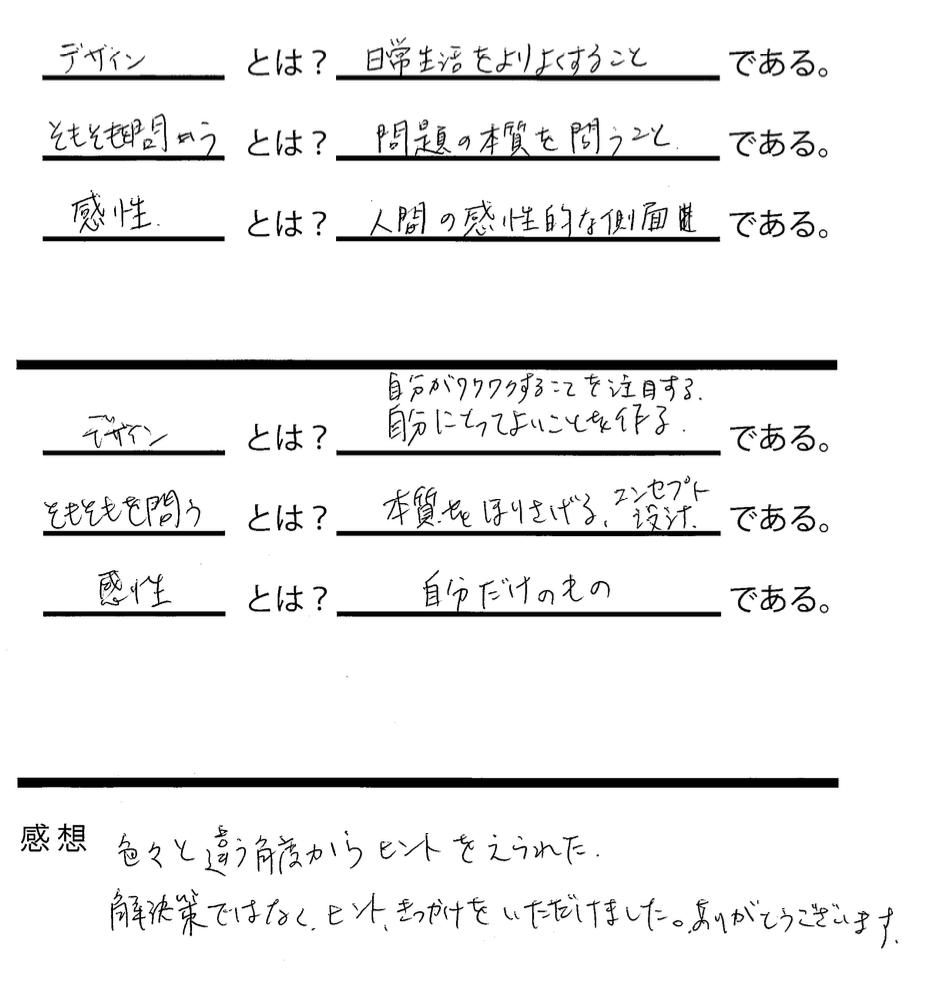 デザイン とは? 日常生活をよりよくすること である。
そもそもを問う とは? 問題の本質を問うこと. である。
感性. とは? 人間の感性的な側面 である。
自分がワクワクすることを注目する.
デザイン とは? 自分にとってよいことを作る. である。
そもそもを問う とは? 本質をほりさげる、コンセプト設計. である。
感性 とは? 自分だけのもの である。
感想 色々と違う角度からヒントをえられた.
解決策ではなく、ヒント、きっかけをいただけました。ありがとうございます.